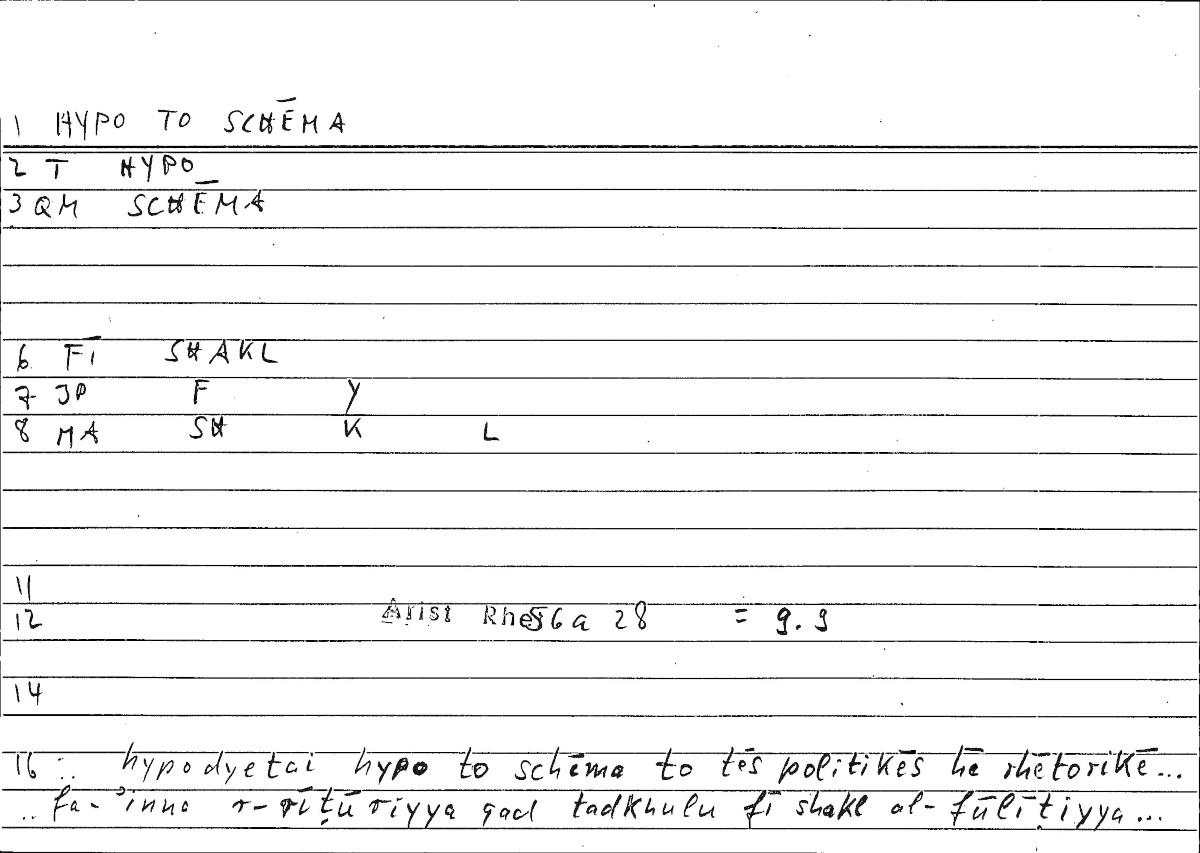 1 HYPO TO SCHĒMA
2 T HYPO
3 QM SCHĒMA
6 FĪ SHAKL
7 JP F Y
8 MA SH K L
11
12 Arist Rhe 56 a 28 = 9.9
14
16 .. hypodyetai hypo to schēma to tēs politikēs hē rhētorikē...
.. fa-ʾinna r-rīṭūriyya qad tadkhulu fī shakl al-fūlīṭiyya...